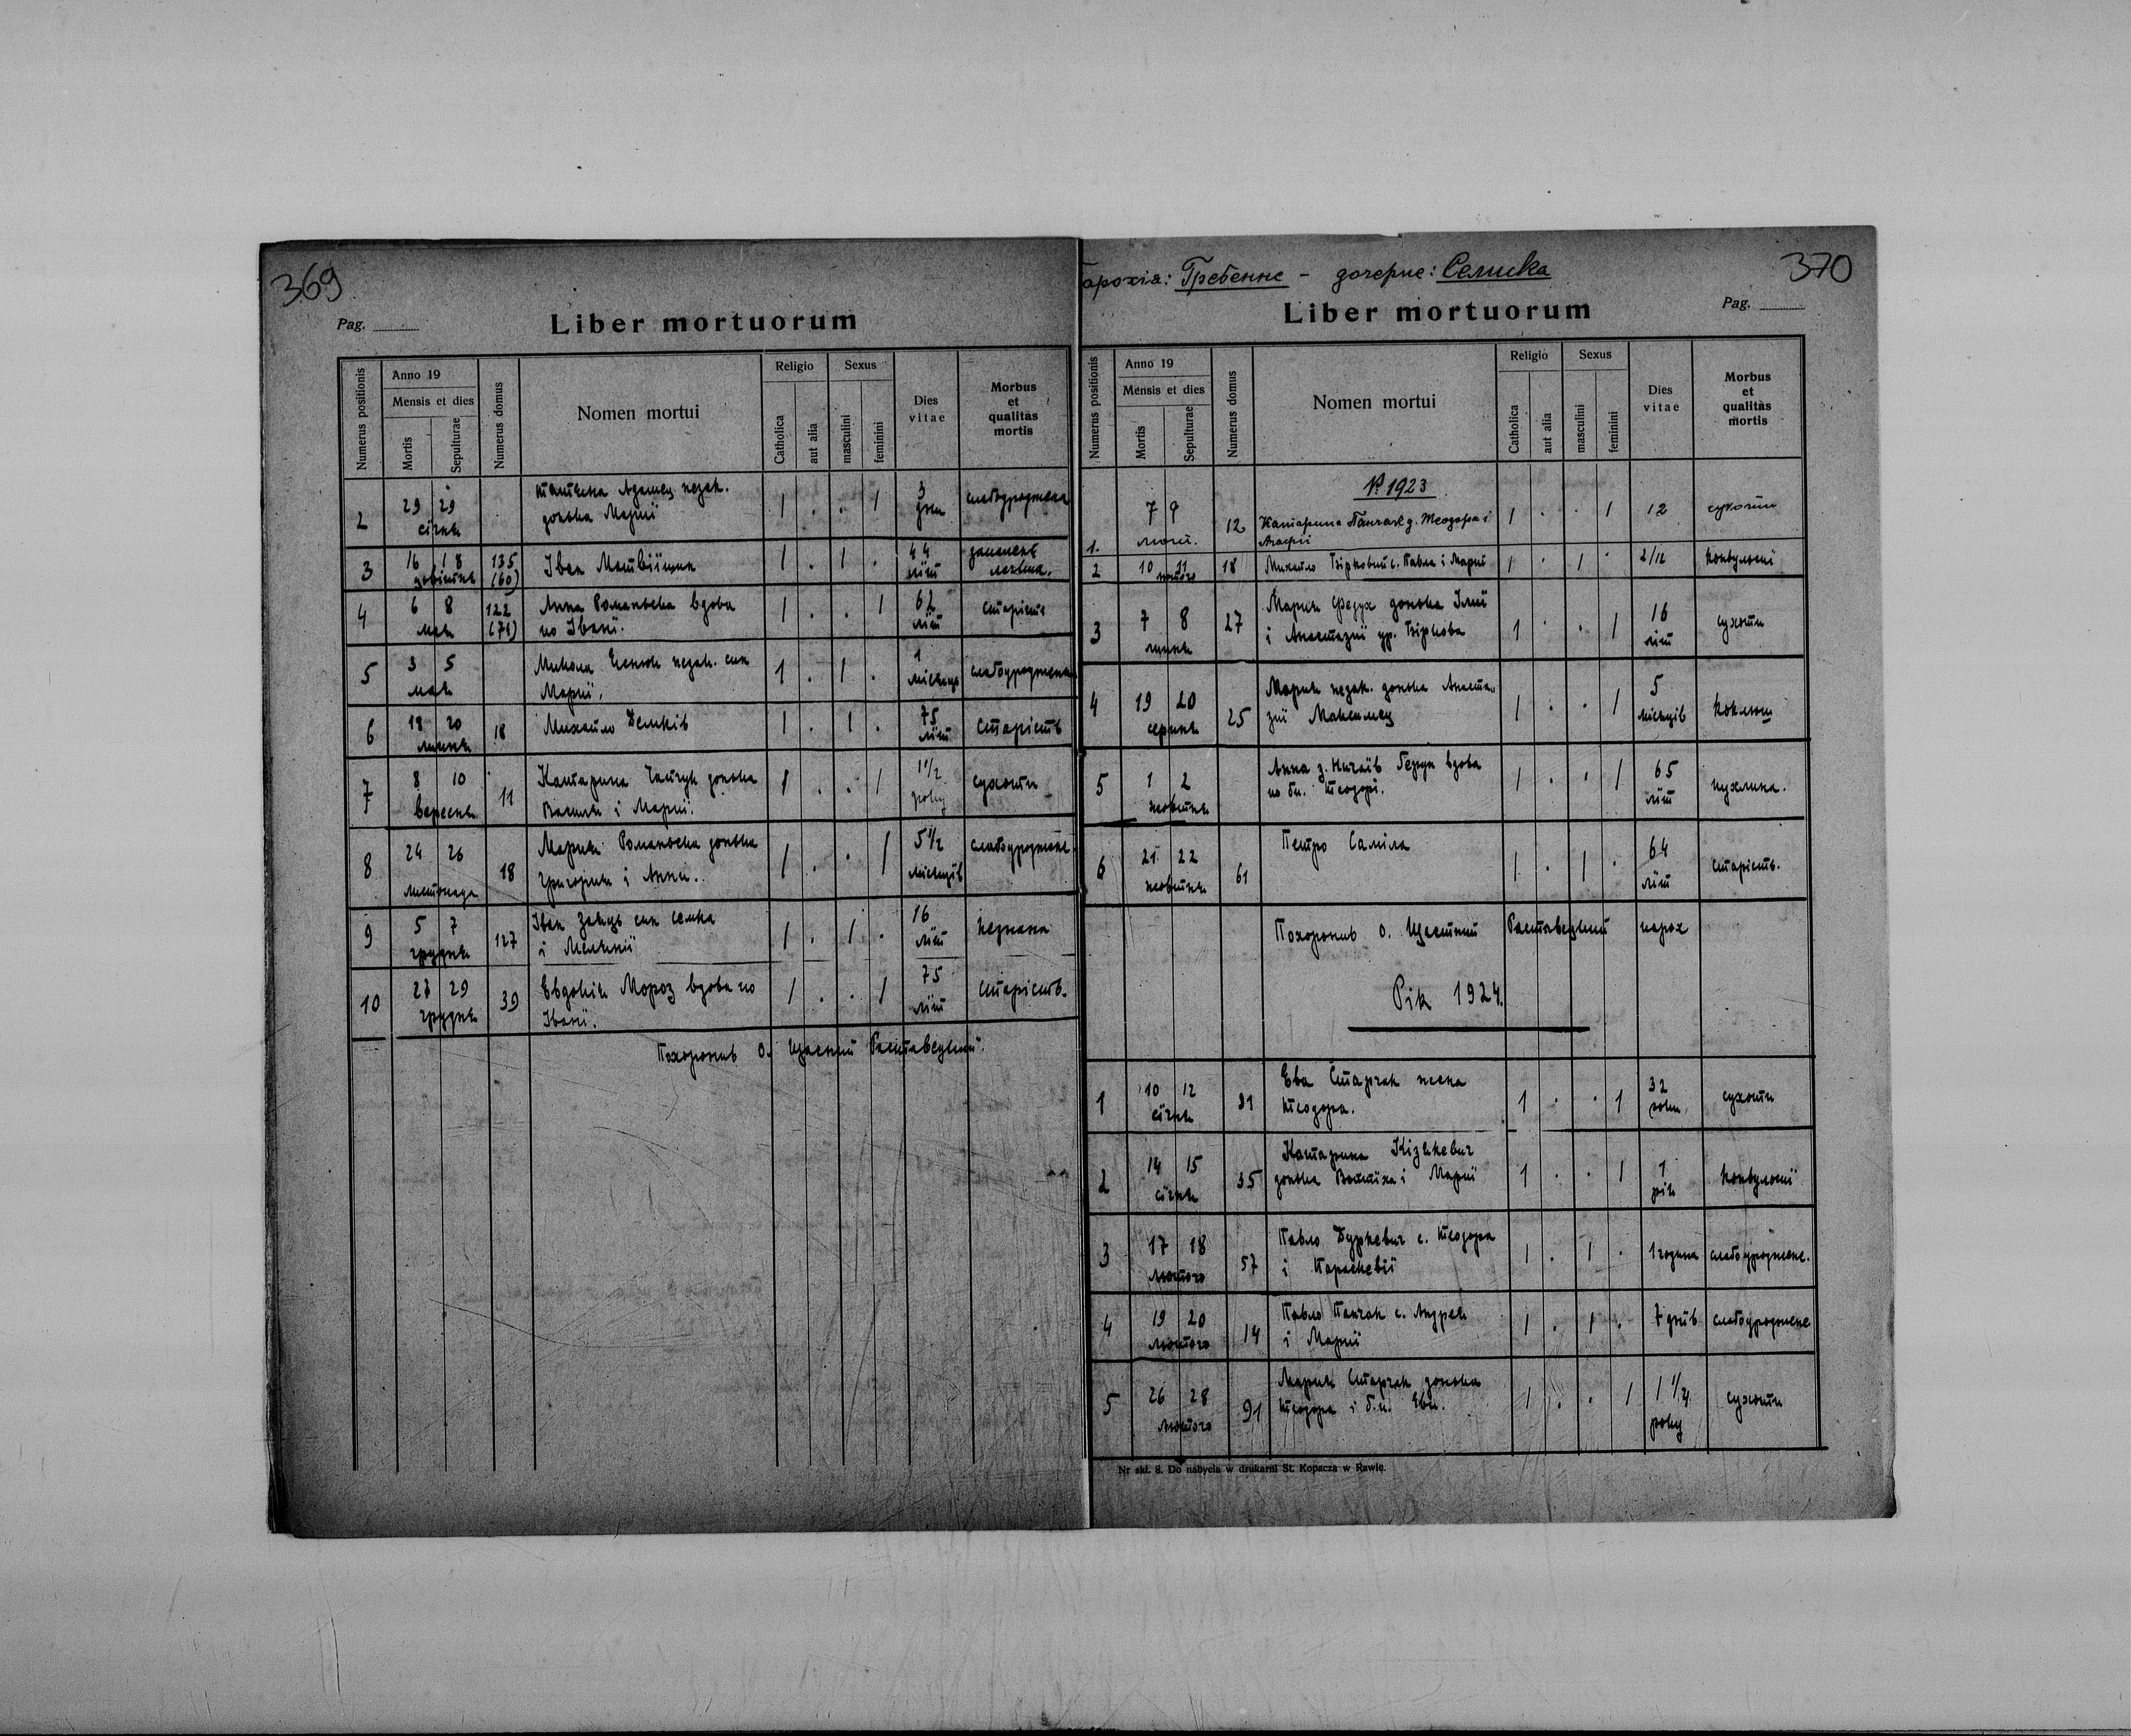 369
Pag.
Liber mortuorum
Numerus positionis
Anno 19
Mensis et dies
Mortis
Sepulturae
Numerus domus
Nomen mortui
Religio
Catholica
aut alia
Sexus
masculini
feminini
Dies vitae
Morbus et qualitas mortis
2 29 29 Адамец незак. 1 . . 1 3
січня донька Марії дни
3 16 18 135 Іван 1 . 1 . 44
(60) літ
4 6 8 122 Анна Романьска вдова 1 . . 1 62 старість
мая (71) по Івані. літ
5 3 5 Микола незак. син 1 . 1 . 1
мая Марії. місяць
6 18 20 18 Михайло Демків 1 . 1 . 75 старість
липня літ
7 8 10 11 Катарина донька 1 . . 1 1 1/2 сухоти
вересня Василя і Марії. року
8 24 26 18 Мария Романьска донька 1 . . 1 5 1/2
листопада Григория і Анни. місяців
9 5 7 127 Іван Заяць син Семка 1 . 1 . 16 незнана
грудня і літ
10 27 29 39 Евдокія Мороз вдова по 1 . . 1 75 старість.
грудня Івані. літ
Похоронив о. Щасний
370
Парохія: Гребенне - дочерне: Селиска
Liber mortuorum
Pag.
Numerus positionis
Anno 19
Mensis et dies
Mortis
Sepulturae
Numerus domus
Nomen mortui
Religio
Catholica
aut alia
Sexus
masculini
feminini
Dies vitae
Morbus et qualitas mortis
Р. 1923
1. 7 9 12 Катарина Панчак д. Теодора і 1 . . 1 12 сухоти
лют.
2 10 11 18 Михайло с. Павла і Марії 1 . 1 . 2/12 конвульсії
лютого
3 7 8 27 Мария Федух донька Ілії 1 . . 1 16 сухоти
липня і Анастазиї ур. літ
4 19 20 25 Мария незак. донька Анаста- 1 . . 1 5 коклюш
серпня зиї Максимец місяців
5 1 2 Анна з вдова 1 . . 1 65 пухлина.
жовтня по бл. Теодорі. літ
6 21 22 61 Петро Саміла 1 . 1 . 64 старість.
жовтня літ
Похоронив о. Щастний парох
Рік 1924.
1 10 12 91 Ева Старчак жена 1 . . 1 32 сухоти
січня Теодора. роки
2 14 15 35 Катарина 1 . . 1 1 конвульсії
січня донька Войтіха і Марії рік
3 17 18 57 Павло Буркевич с. Теодора 1 . 1 . 1 година слабоурождене.
лютого і Параскевії
4 19 20 14 Павло Панчак с. Андрея 1 . 1 . 7 днів слабоурождене
лютого і Марії
5 26 28 91 Мария Старчак донька 1 . . 1 1 1/4 сухоти
лютого Теодора і б.п. Еви. року
Nr skł. 8. Do nabycia w drukarni St. Kopacza w Rawie.